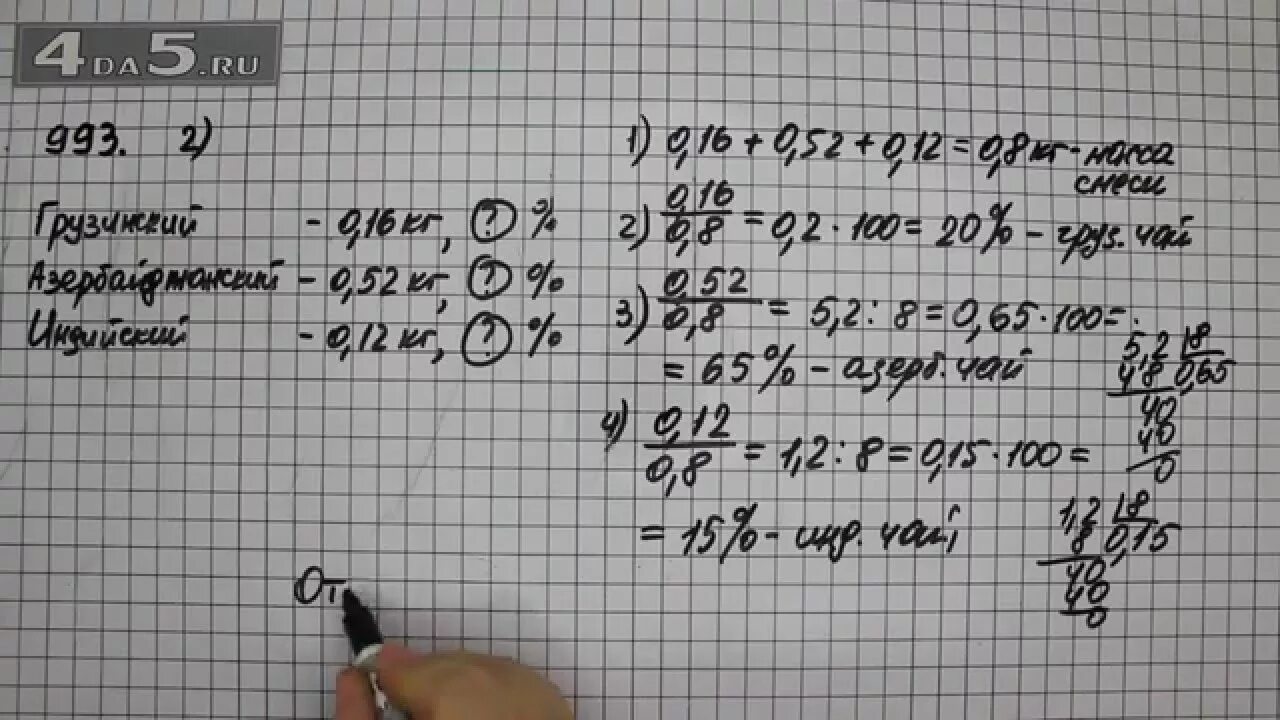 4DA5.RU
993. 2)
Грузинский - 0,16 кг, ? %
Азербайджанский - 0,52 кг, ? %
Индийский - 0,12 кг, ? %
1) 0,16 + 0,52 + 0,12 = 0,8 кг - масса
смеси
2) 0,16/0,8 = 0,2 · 100 = 20% - груз. чай
3) 0,52/0,8 = 5,2 : 8 = 0,65 · 100 =
= 65% - азерб. чай
5,2 | 8
48 0,65
40
40
0
4) 0,12/0,8 = 1,2 : 8 = 0,15 · 100 =
= 15% - инд. чай
1,2 | 8
8 0,15
40
40
0
От